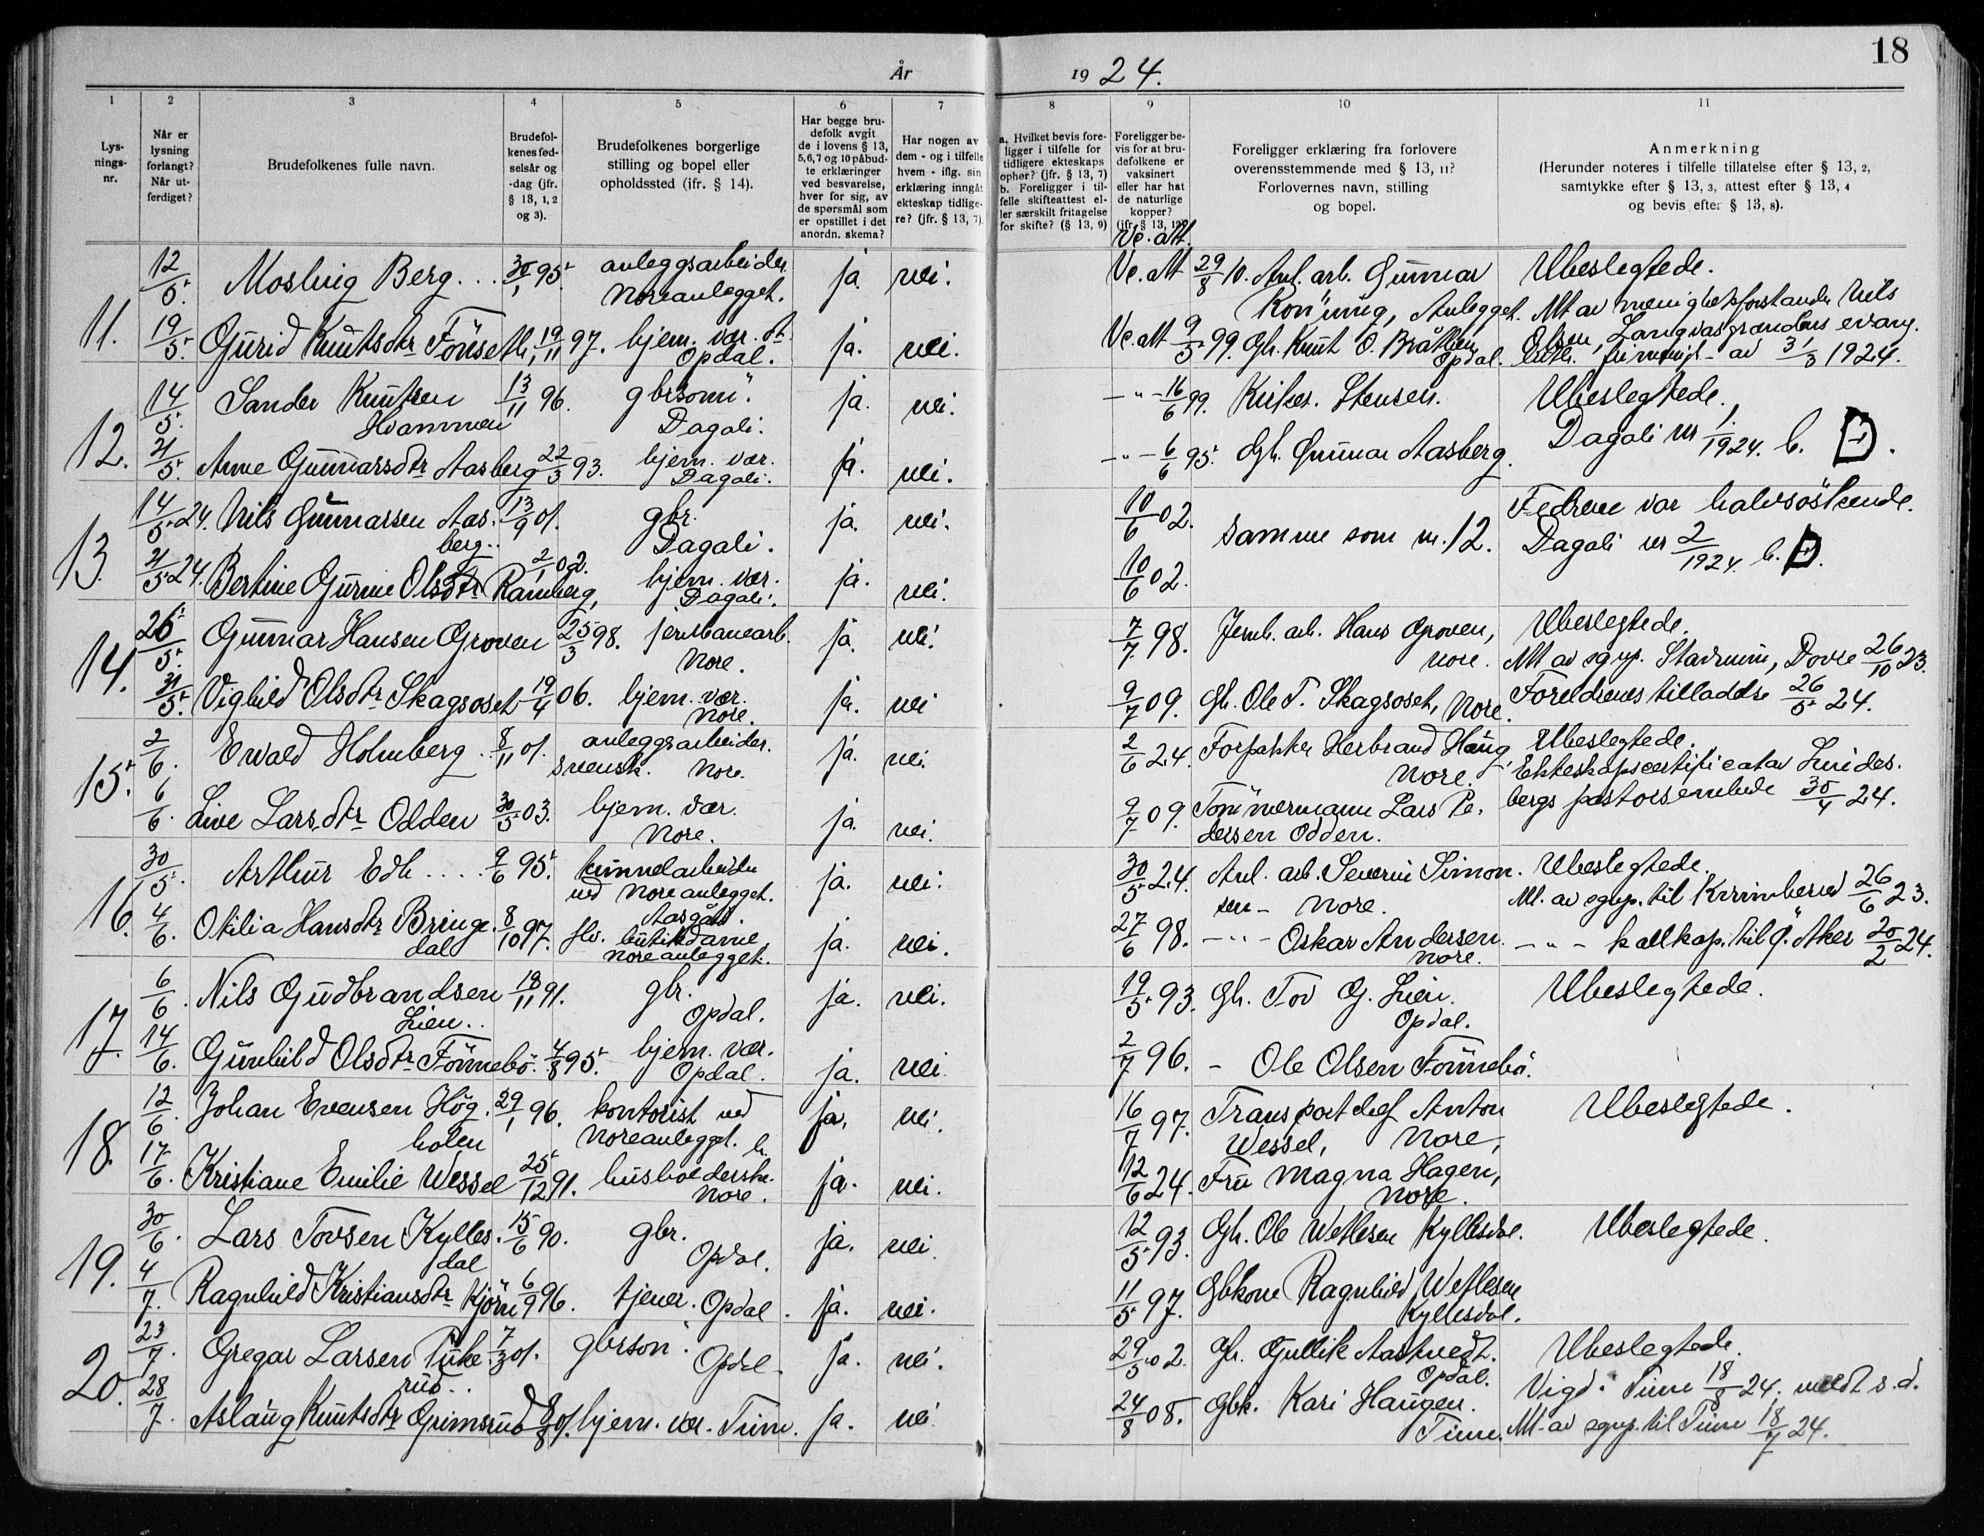 18
År 1924.
1 2 3 4 5 6 7 8 9 10 11
Lys-
nings-
nr.
Når er
lysning
forlangt?
Når ut-
ferdiget?
Brudefolkenes fulle navn.
Brudefol-
kenes fød-
selsår og
-dag (jfr.
§ 13, 1, 2
og 3).
Brudefolkenes borgerlige
stilling og bopel eller
opholdssted (ifr. § 14).
Har begge bru-
defolk avgit
de i lovens § 13,
5, 6, 7 og 10 påbud-
te erklæringer
ved besvarelse,
hver for sig, av
de spørsmål som
er opstillet i det
anordn. skema?
Har nogen av
dem - og i tilfelle
hvem - iflg. sin
erklæring inngåt
ekteskap tidlige-
re? (jfr. § 13, 7)
a. Hvilket bevis fore-
ligger i tilfelle for
tidligere ekteskaps
ophør? (jfr. § 13, 7)
b. Foreligger i til-
felle skifteattest el-
ler særskilt fritagelse
for skifte? (§ 13, 9)
Foreligger be-
vis for at bru-
defolkene er
vaksinert
eller har hat
de naturlige
kopper?
(jfr. § 13, 10)
Foreligger erklæring fra forlovere
overensstemmende med § 13, 11?
Forlovernes navn, stilling
og bopel.
Anmerkning
(Herunder noteres i tilfelle tillatelse efter § 13, 2,
samtykke efter § 13, 3, attest efter § 13, 4
og bevis efter § 13, 8).
Vc. att.
11. 12/5. Berg... 30/1 95. anleggsarbeider ja. nei. Vc. att 29/8 10. Anl. arb. Gunnar Ubeslegtede.
Noreanlegget. Anlegget. Att av menighetsforstander Nils
19/5. Gurid Knutsdtr Fönset 19/11 97. hjem. vær. ja. nei. Vc. att 9/5 99. Gb. Knut O. Bråthen Olsen, evang.
Opdal. Opdal. luth. frimenigh. av 31/3 1924.
12. 14/5. Sander Knutsen 13/11 96. gbrsönn. ja. nei. -"- 16/6 99. Kirkes. Stensen. Ubeslegtede.
Hvammen Dagali.
21/5. Anne Gunnarsdtr Aasberg 22/3 93. hjem. vær. ja. nei. -"- 6/6 95. Gb. Gunnar Aasberg. Dagali nr 1/1924. b.
Dagali.
13. 14/5 24. Nils Gunnarsen Aas- 13/9 01. gbr. ja. nei. 10/6 02. samme som nr. 12. Fedrene var halvsöskende.
berg.. Dagali. Dagali nr 2/1924. b.
21/5 24. Bertine Gurine Olsdtr Ramberg, 2/1 02. hjem. vær. ja. nei. 10/6 02.
Dagali.
14. 26/5. Gunnar Hansen Groven 25/3 98. jernbanearb. ja. nei. 7/7 98. Jernb. arb. Hans Groven, Ubeslegtede.
Nore. Nore. Att av sgnp. Dovre 26/10 23.
31/5. Vighild Olsdtr Skagsoset 19/4 06. hjem. vær. ja. nei 9/7 09. Gb. Ole T. Skagsoset, Nore. Foreldrenes tilladelse 26/5 24.
Nore.
15. 2/6. Ewald Holmberg.. 8/11 01. anleggsarbeider. ja. nei. 2/6 24. Forpakter Herbrand Haug Ubeslegtede.
svensk. Nore. Nore. Ekteskapscertificat av Lindes-
6/6. Live Larsdtr Odden 30/5 03. hjem. vær. ja. nei. 9/7 09. Tömmermann Lars Pe- bergs pastorsembede 30/4 24.
Nore. dersen Odden.
16. 30/5. Arthur Edh.... 9/6 95. tunnelarbeider ja. nei. 30/5 24. Anl. arb. Severin Simon- Ubeslegtede.
ved Noreanlegget. sen - Nore. Att. av sgnp. til 26/6 23.
4/6. Otilia Hansdtr Bringe- 8/10 97. butikdame ja. nei. 27/6 98. -"- Oskar Andersen -"- kallkap. til Ö. Aker 20/2 24.
dal Noreanlegget. Nore.
17. 6/6. Nils Gudbrandsen 18/11 91. gbr. ja. nei. 19/5 93. Gb. Tov G. Lien. Ubeslegtede.
Lien.. Opdal. Opdal.
14/6. Gunhild Olsdtr Fönnebö. 4/8 95. hjem. vær. ja. nei. 2/7 96. - Ole Olsen Fönnebö.
Opdal.
18. 12/6. Johan Evensen Hög- 29/1 96. kontorist ved ja. nei. 16/7 97. Transportchef Anton Ubeslegtede.
holen Noreanlegget. Wessel, Nore,
17/6. Kristiane Emilie Wessel 25/12 91. husholderske. ja. nei. 12/6 24. Fru Magna Hagen,
Nore. Nore.
19. 30/6. Lars Tovsen Kylles- 15/6 90. gbr. ja. nei. 12/5 93. Gb. Ole Wetlesen Kyllesdal. Ubeslegtede.
dal Opdal.
4/7. Ragnhild Kristiansdtr Kjörn 6/9 96. tjener. Opdal. ja. nei. 11/5 97. Gbkone Ragnhild Wetlesen
Kyllesdal.
20. 23/7. Gregar Larsen Tuke- 7/3 01. gbrsön. ja. nei. 29/5 02. Gb. Gullik Aastvedt. Ubeslegtede.
rud.. Opdal. Opdal. Vigd. Tinn 18/8 24. meldt s.d.
28/7. Aslaug Knutsdtr Grimsrud 8/8 01. hjem. vær. Tinn. ja. nei. 24/8 08. Gbk. Kari Haugen. Att. av sgnp. til Tinn 18/7 24.
Tinn.